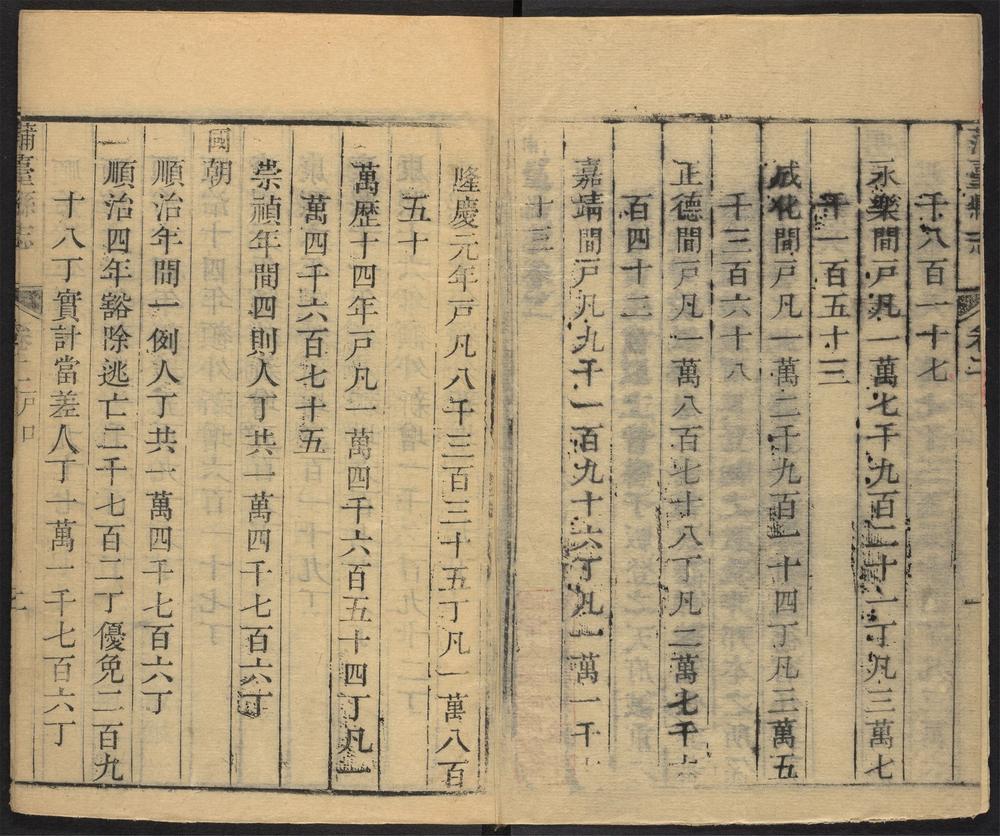 蒲臺縣志 卷之二
千八百一十七
永樂間戸凡一萬七千九百二十一丁凡三萬七
千一百五十三
成化間戸凡一萬二千九百一十四丁凡三萬五
千三百六十八
正德間戸凡一萬八百七十八丁凡二萬七千六
百四十二
嘉靖間戸凡九千一百九十六丁凡一萬一千
十三
隆慶元年戸凡八千三百三十五丁凡一萬八百
五十
萬歷十四年戸凡一萬四千六百五十四丁凡一
萬四千六百七十五
崇禎年間四則人丁共一萬四千七百六丁
國朝
順治年間一例人丁共一萬四千七百六丁
順治四年豁除逃亡二千七百二丁優免二百九
十八丁實計當差人丁一萬一千七百六丁
蒲臺縣志 卷之二戸口